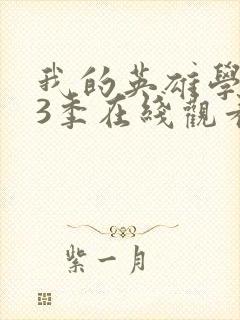 我的英雄學
3季在綫觀看
紫一月